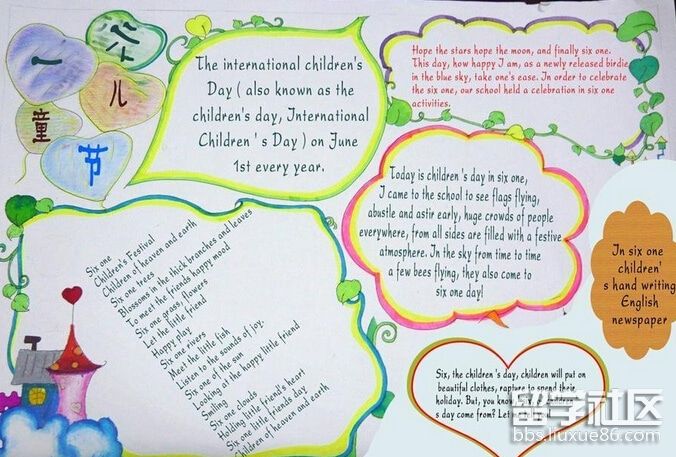 六
一
儿
童
节
The international children's
Day ( also known as the
children's day, International
Children ' s Day ) on June
1st every year.
Hope the stars hope the moon, and finally six one.
This day, how happy I am, as a newly released birdie
in the blue sky, take one's ease. In order to celebrate
the six one, our school held a celebration in six one
activities.
Today is children 's day in six one,
I came to the school to see flags flying,
abustle and astir early, huge crowds of people
everywhere, from all sides are filled with a festive
atmosphere. In the sky from time to time
a few bees flying, they also come to
six one day!
In six one
children'
s hand writing
English
newspaper
Six one
Children's Festival
Children of heaven and earth
Six one trees
Blossoms in the thick branches and leaves
To meet the friends happy mood
Six one grass, flowers
Let the little friend
Happy play
Six one rivers
Meet the little fish
Listen to the sounds of joy.
Six one of the sun
Looking at the happy little friend
Smiling
Six one clouds
Holding little friend's heart
Six one little friends day
Children of heaven and earth
Six, the children 's day, children will put on
beautiful clothes, rapture to spend their
holiday. But, you know
s day come from? Let
留学社区
bbs.liuxue86.com